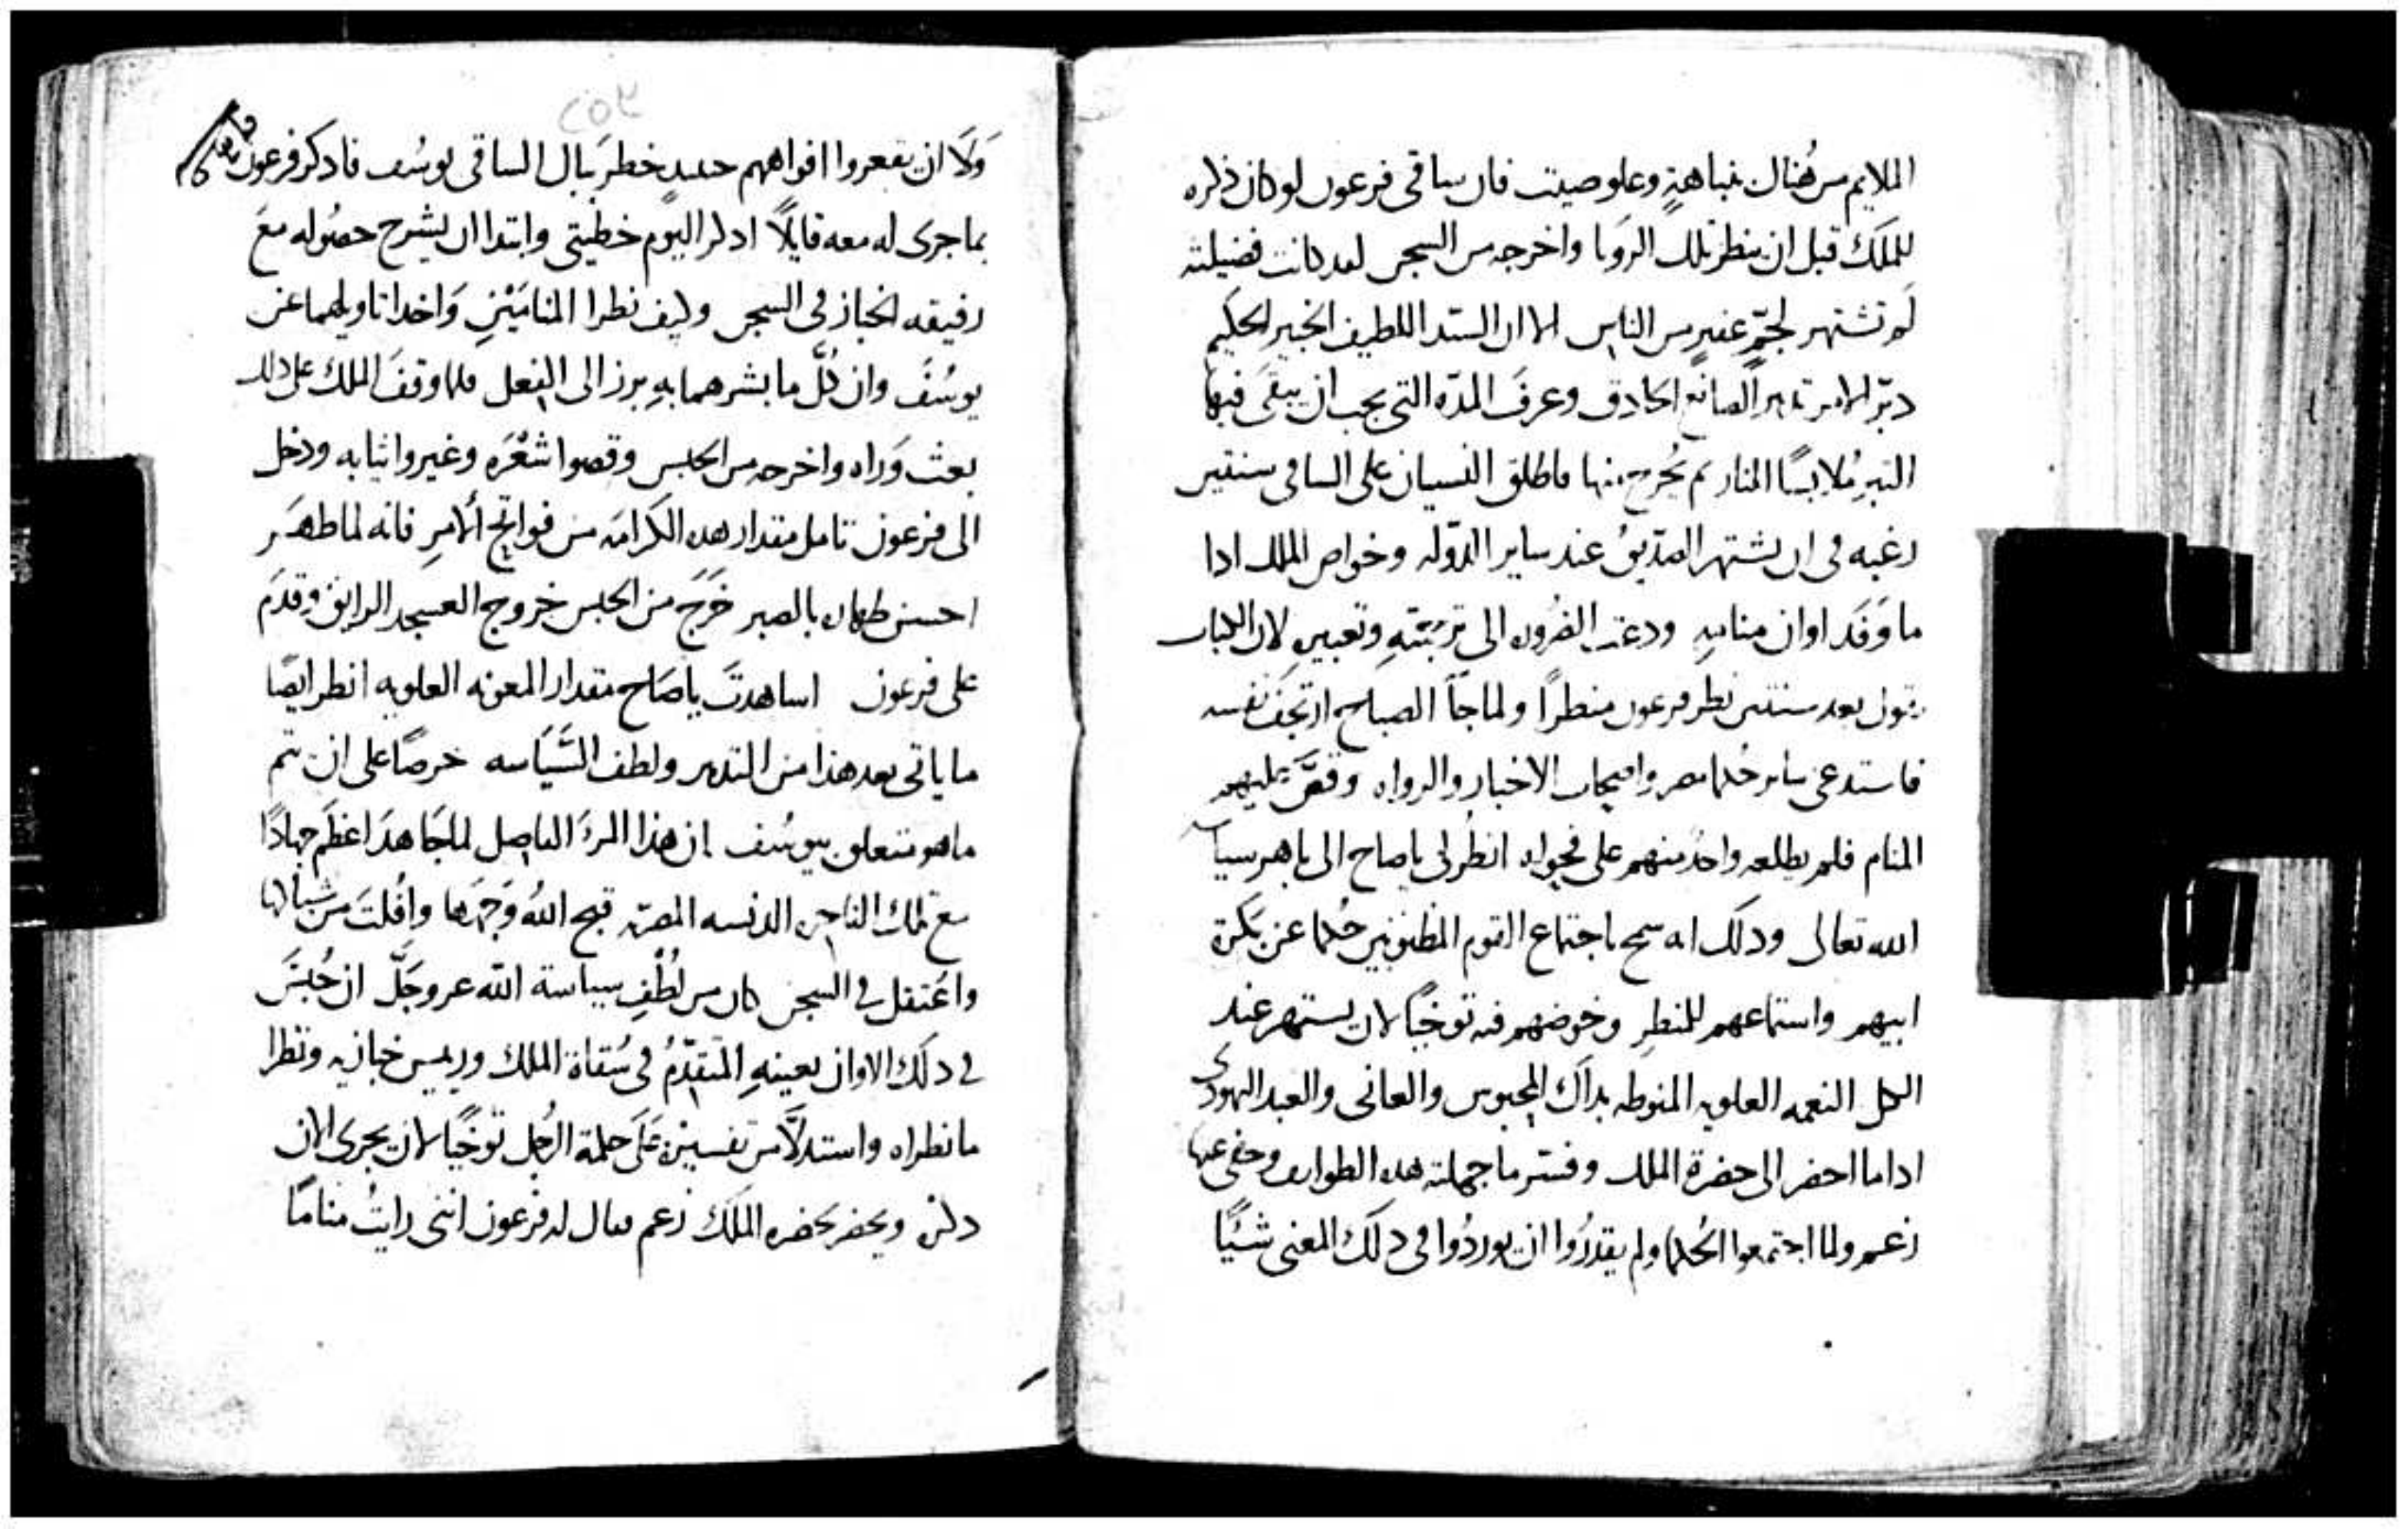 الملايم من هُناك بنباهةٍ وعلو صيت فان ساقى فرعون لو كان ذكره
للملك قبل ان ينظر تلك الرويا واخرجه من السجن لعد كانت فضيلته
لم تشتهر لجمٍّ غفيرٍ من الناس الا ان السيد اللطيف الخبير الحكيم
دبّر الامر تدبير الصانع الحادق وعرفَ المدّه التى يجب ان يبقى فيها
التبر مُلابسًا النار ثم يُخرج منها فاطلق النسيان على الساقى سنتين
رغبه فى ان يشتهر الصدّيقُ عند ساير الدوّله وخواص الملك ادا
ما وَفَد اوان منامهِ ودعت الضروره الى تربيّتهِ وتعبيرهِ لان الكتاب
يقول بعد سنتين نظر فرعون منظرًا ولما جآ الصباح ارتجف نفسه
فاستدعى ساير حُكما مصر واصحاب الاخبار والرواه وقصَّ عليهم
المنام فلم يطلعه واحدٌ منهم على فحواه انظُر لى ياصاح الى باهر سياسه
الله تعالى ودلك انه سمح باجتماع القوم المظنونين حُكما عن بكرة
ابيهم واستماعهم للمنظر وخوضهم فيه توخيًا لان يستمهر عند
الكل النعمه العلويه المنوطه بداك المحبوس والعانى والعبد اليهودى
ادا ما احضر الى حضرة الملك وفسّر ما جهلته هده الطوايف وخفى عنها
زعم ولما اجتمعوا الحُكما ولم يقدرُوا ان يوردُوا فى دلك المعنى شيًا
وَلَا ان يفغروا افواههم حينيدٍ خطر ببال الساقى يوسُف فادكر فرعون
بما جرى له معه قايلًا ادكر اليوم خطيتى وابتدا ان يشرح حصُوله معَ
رفيقه الخباز فى السجن وكيف نظرا المنامَيْنِ وَاخدا تاويلهما عن
يوسُفَ وان كُلَّ ما بشرهما بهِ برز الى الفعل فلما وقفَ الملك على دلك
بعث وَراه واخرجه من الحبس وقصوا شعْرَه وغيروا ثيابه ودخل
الى فرعون تامل مقدار هده الكرامه من فواتح الامرِ فانه لما ظهَر
احسن ظهار بالصبر خَرَجَ من الحبس خروج العسجد الرايق وقدَم
على فرعون اساهدتَ ياصَاح مقدار المعونه العلويه انظر ايضًا
ما ياتى بعد هذا من التدبير ولطف السّيَاسه حرصًا على ان تتم
ما هو متعلق بيوسُف ان هذا المرءَ الفاضل لما جَاهدَ اعظَم جهادًا
مع تلك الفاجره الدنسه المصريه قبح اللهُ وَجههَا وافْلتَ من شباكها
واعتقل فى السجن كان من لُطْفِ سياسة الله عز وجَلَّ ان حُبسَ
فى دلك الاوان بعينهِ المتقدّمُ فى سُقاة الملك وريس خبازيه ونظرا
ما نظراه واستدلَّا من تفسيرهِ عَلَى حكمة الرجُل توخيًا لان يجرى الان
دكره ويحضر بحضره الملك زعم فقال له فرعون اننى رايتُ منامًا